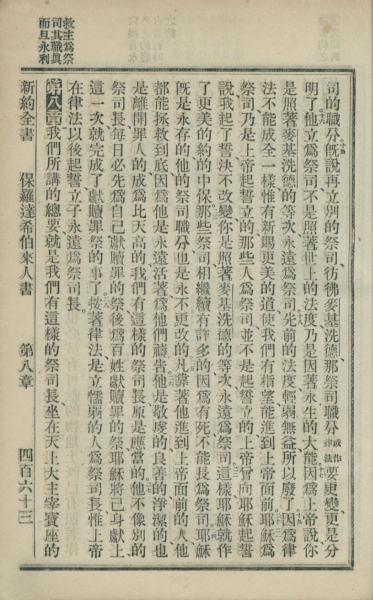 救主爲祭
司其職眞
而且永利
司的職分、旣說再立別的祭司彷彿麥基洗德、那祭司職分或作律法要更變、更是分
明了、他立爲祭司、不是照著世上的法度、乃是因著永生的大能、因爲上帝說、你
是照著麥基洗德的等次永遠爲祭司、先前的法度、輕弱無益、所以廢了、因爲律
法不能成全一樣、惟有新賜更美的道、使我們有指望能進到上帝面前、耶穌爲
祭司、乃是上帝起誓立的、那些人爲祭司、並不是起誓立的、上帝曾向耶穌起誓
說、我起了誓決不改變、你是照著麥基洗德的等次、永遠爲祭司、這樣、耶穌就作
了更美的約的中保、那些祭司相繼續有許多的、因爲有死不能長爲祭司、耶穌
旣是永存的、他的祭司職分也是永不更改的、凡靠著他進到上帝面前的人、他
都能拯救到底、因爲他是永遠活著、爲他們禱告、他是敬虔的、良善的、淨潔的、也
是離開罪人的、成爲比天高的、我們有這樣的祭司長、原是應當的、他不像別的
祭司長、每日必先爲自己獻贖罪的祭、後爲百姓獻贖罪的祭、耶穌將己身獻上、
這一次就完成了獻贖罪祭的事了、按著律法、是立懦弱的人爲祭司長、惟上帝
在律法以後起誓立子永遠爲祭司長、
第八章 我們所講的總要、就是我們有這樣的祭司長、坐在天上大主宰寶座的
新約全書 保羅達希伯來人書 第八章 四百六十三